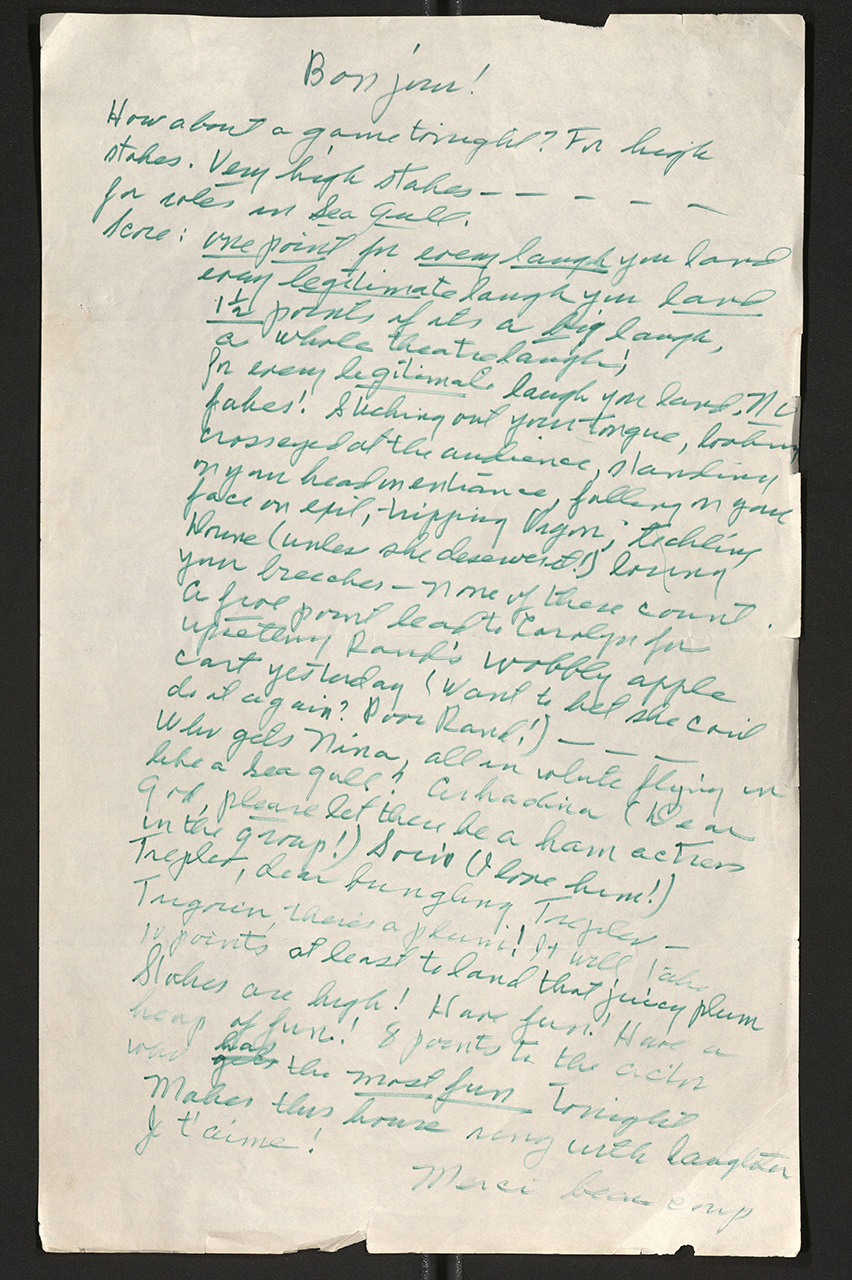 Bonjour!
How about a game tonight? For high
stakes. Very high stakes — — — — —
for roles in Sea Gull.
Score: one point for every laugh you land
every legitimate laugh you land
1½ points if its a big laugh,
a whole theatre laugh!
for every legitimate laugh you land. No
fakes! Sticking out your tongue, looking
crosseyed at the audience, standing
on your head on entrance, falling on your
face on exit, tripping Orgon, tickling
Dorine (unless she deserves it!) losing
your breeches — none of these count.
A five point lead to Carolyn for
upsetting Rand's wobbly apple
cart yesterday (Want to bet she can
do it again? Poor Rand!) — — —
Who gets Nina, all in white flying in
like a sea gull? Arkadina (Dear
God, please let there be a ham actress
in the group!) Sorin (I love him!)
Treplev, dear bungling Treplev —
Trigorin, there's a plum! It will take
10 points at least to land that juicy plum
Stakes are high! Have fun! Have a
heap of fun! 8 points to the actor
who gets has the most fun Tonight
Makes this house ring with laughter
Je t'aime!
Merci beaucoup